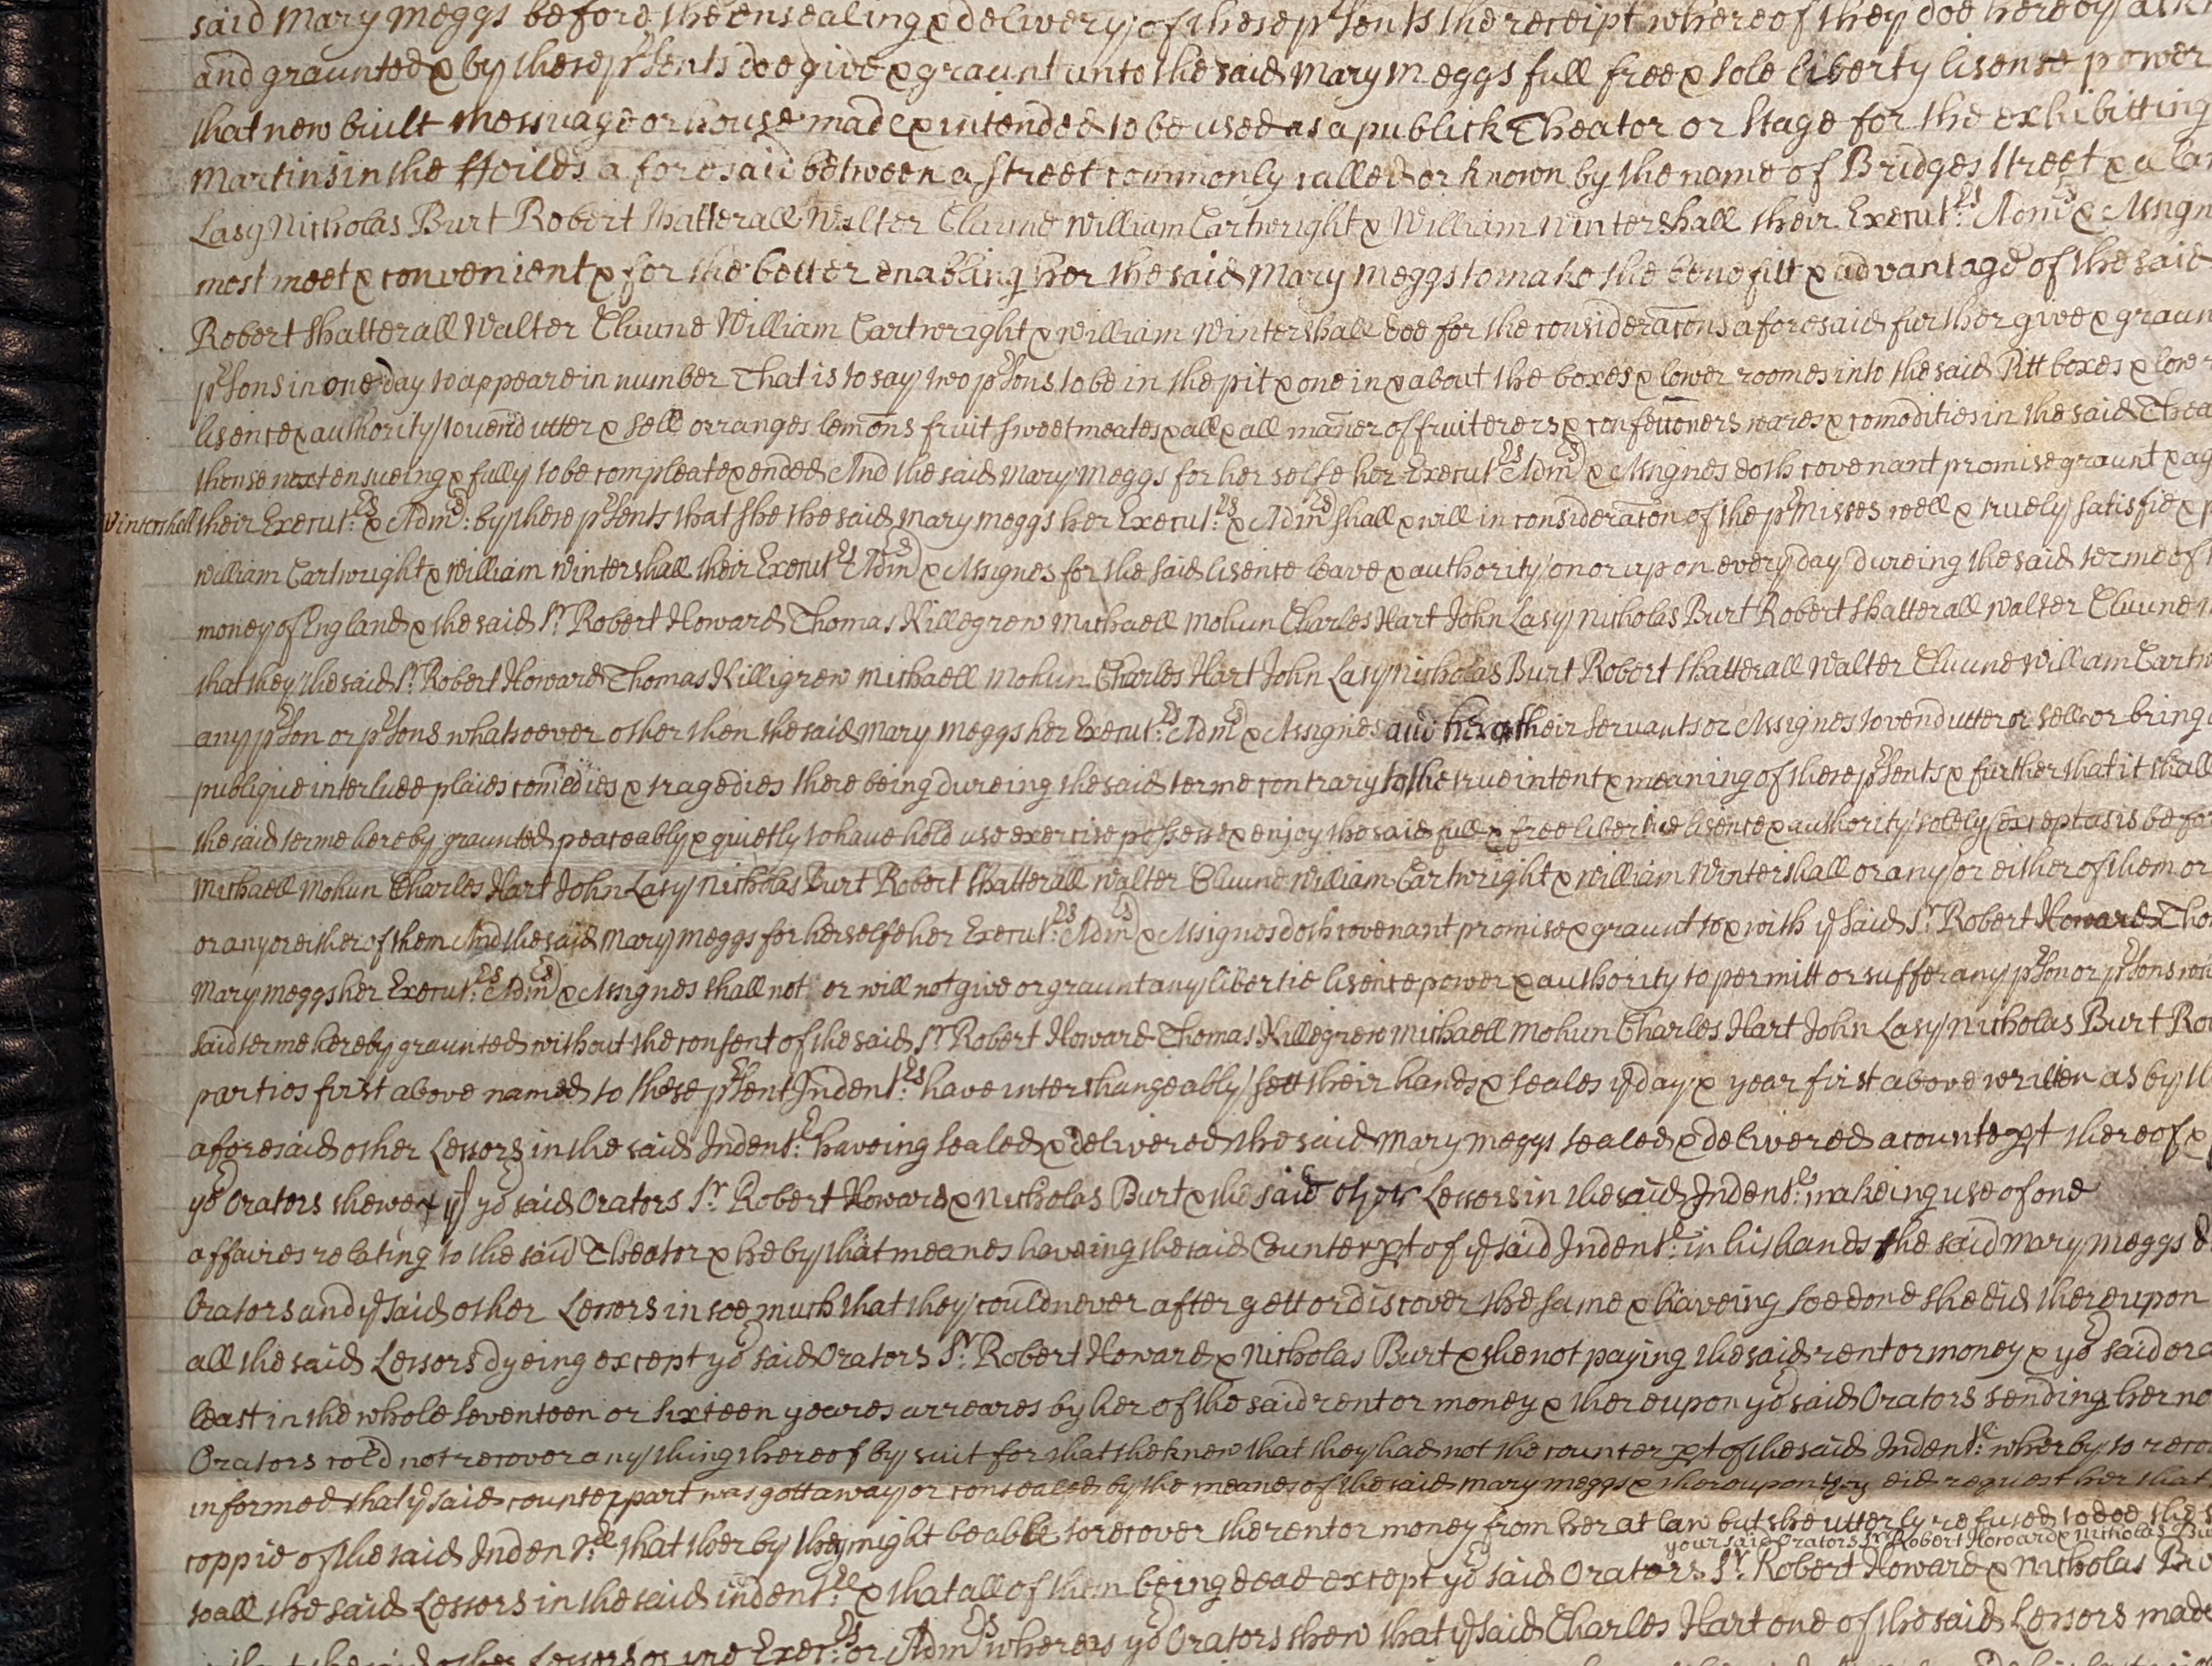 said Mary Meggs before the ensealing & delivery of these pr̃sents the receipt whereof they doe hereby
and graunted & by these pr̃sents doe give & graunt unto the said Mary Meggs full free & sole liberty lisense power
that new built Messuage or house made & intended to be used as a publick Theator or Stage for the exhibitting
Martins in the ffeilds aforesaid between a street commonly called or known by the name of Bridges street & a
Lasy Nicholas Burt Robert Shatterall Walter Cluune William Cartwright & William Wintershall their Execut:rs Adm:rs & Assign
most meet & convenient & for the better enabling her the said Mary Meggs to make the benefitt & advantage of the said
Robert Shatterall Walter Cluune William Cartwright & William Wintershall doe for the consideracons aforesaid further give & graun
pr̃sons in one day to appeare in number That is to say two pr̃sons to be in the pit & one in & about the boxes & lower roomes into the said Pitt boxes & low
lisence & authority to vend utter & sell orranges lemons fruit sweetmeates & all & all mañer of fruiterers & confectioners wares & comodities in the said Thea
thense next ensueing & fully to be compleate & ended And the said Mary Meggs for her selfe her Execut:rs Adm:rs & Assignes doth covenant promise graunt & ag
Wintershall their Execut:rs & Adm:rs by these pr̃sents that she the said Mary Meggs her Execut:rs & Adm:rs shall & will in consideracon of the pr̃misses well & truely satisfie &
William Cartwright & William Wintershall their Execut:rs Adm:rs & Assignes for the said lisence leave & authority on or upon every day dureing the said terme of
money of England & the said Sr. Robert Howard Thomas Killegrew Michaell Mohun Charles Hart John Lasy Nicholas Burt Robert Shatterall Walter Cluune
that they the said Sr. Robert Howard Thomas Killigrew Michaell Mohun Charles Hart John Lasy Nicholas Burt Robert Shatterall Walter Cluune William Cartw
any pr̃son or pr̃sons whatsoever other then the said Mary Meggs her Execut:rs Adm:rs & Assignes and her or their servants or Assignes to vend utter or sell or bring
publique interlude plaies comedies & tragedies there being dureing the said terme contrary to the true intent & meaning of these pr̃sents & further that it shall
the said terme hereby graunted peaceably & quietly to have hold use exercise possesse & enjoy the said full & free libertie lisence & authority solely except as is befor
Michaell Mohun Charles Hart John Lasy Nicholas Burt Robert Shatterall Walter Cluune William Cartwright & William Wintershall or any or either of them or
or any or either of them And the said Mary Meggs for herselfe her Execut:rs Adm:rs & Assignes doth covenant promise & graunt to & with ye said Sr. Robert Howard Tho
Mary Meggs her Execut:rs Adm:rs & Assignes shall not or will not give or graunt any libertie lisence power & authority to permitt or suffer any pr̃son or pr̃sons
said terme hereby graunted without the consent of the said Sr. Robert Howard Thomas Killegrew Michaell Mohun Charles Hart John Lasy Nicholas Burt Ro
parties first above named to these pr̃sent Indent:rs have interchangeably sett their hands & seales ye day & year first above written as by
aforesaid other Lessors in the said Indent:r haveing sealed & delivered the said Mary Meggs sealed & delivered a counterpt thereof &
yor Orators shewet yt yor said Orators Sr. Robert Howard & Nicholas Burt & the said other Lessors in the said Indent:r makeing use of one
affaires relating to the said Theator & he by that meanes haveing the said Counterpt of ye said Indent:r in his hands the said Mary Meggs
Orators and ye said other Lessors in soe much that they could never after gett or discover the same & haveing soe done she did thereupon
all the said Lessors dyeing except yor said Orators Sr. Robert Howard & Nicholas Burt & she not paying the said rent or money & yor said ora
least in the whole seventeen or sixteen yeares arreares by her of the said rent or money & thereupon yor said Orators sending her no
Orators cold not recover any thing thereof by suit for that she knew that they had not the counter pt of the said Indent:r wherby to reco
informed that ye said counterpart was gott away or consealed by the meanes of the said Mary Meggs & thereupon they did request her that
coppie of the said Indent:re that therby they might be able to recover the rent or money from her at law but she utterly refused to doe the
your said Orators Sr. Robert Howard & Nicholas Bu
to all the said Lessors in the said indent:re & that all of them being dead except yor said Orators Sr. Robert Howard & Nicholas Bu
the said other Lessors or Exec:rs or Adm:rs whereas yor Orators shew that ye said Charles Hart one of the said Lessors made